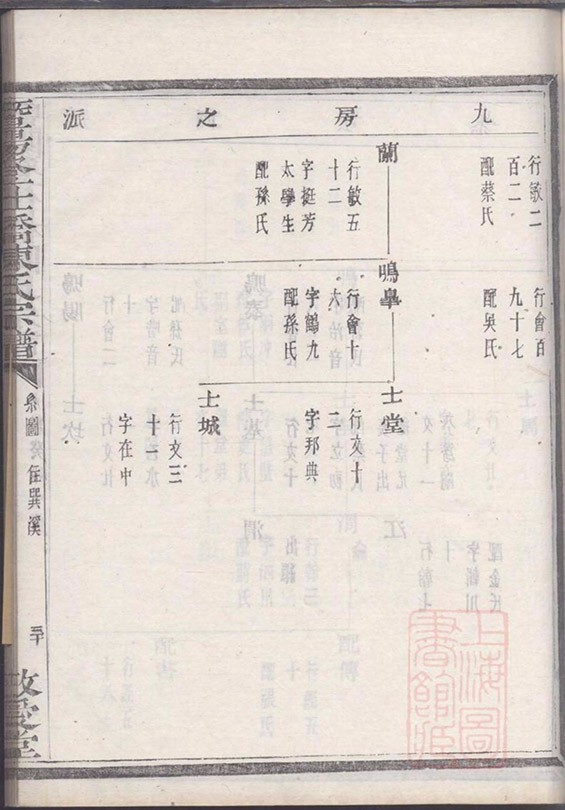 九房之派
行敏二
百二
配蔡氏
蘭
行敏五
十二
字挺芳
太學生
配孫氏
行會百
九十七
配吳氏
鳴臯
行會十
六
字鶴九
配孫氏
士堂
行文十
二
字邦典
士城
行文三
十一
字在中
陳氏宗譜
系圖
住巽溪
上海圖
書館藏